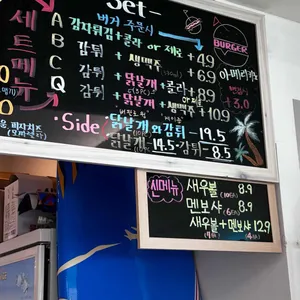 Set-
세트메뉴
버거 주문시
BURGER
A 감자튀김+콜라 or 제로 +4.9
B 감튀 + 생맥주 +6.9
C 감튀 + 닭날개+콜라 +8.9
Q 감튀 + 닭날개+생맥주 +10.9
아메리카노
+3.0
*Side· 닭날개와감튀 - 19.5
닭날개 - 14.5 · 감튀 - 8.5
신메뉴
새우볼 8.9
멘보샤 8.9
새우볼+멘보샤 12.9